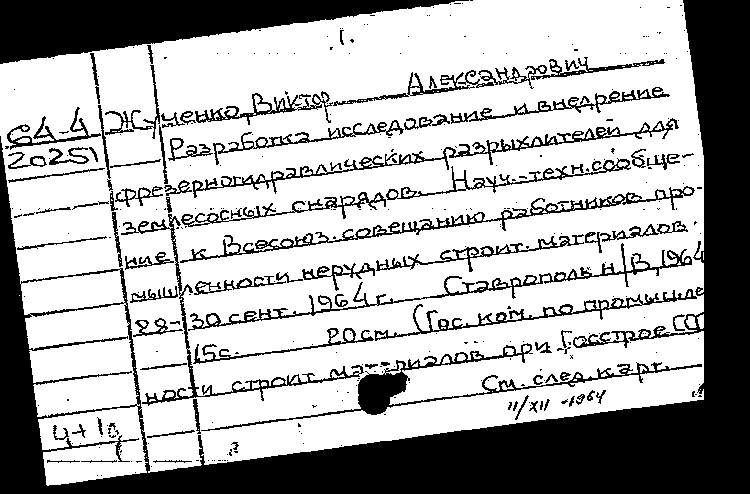 .1.
64-4
20251
Жученко, Виктор Александрович
Разработка исследование и внедрение
фрезерногидравлических разрыхлителей для
землесосных снарядов. Науч.-техн. сообще-
ние к Всесоюз. совещанию работников про-
мышленности нерудных строит. материалов.
28-30 сент. 1964 г. Ставрополь н/В, 1964
15 с. 20 см. (Гос. ком. по промышлен
ности строит. материалов при Госстрое ССС
См. след. карт.
4+1
11/XII - 1964